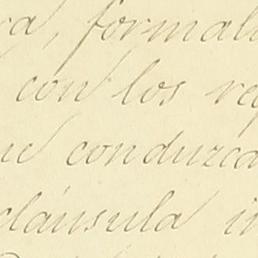 a, formali
con los re
ue conduzca
cláusula i